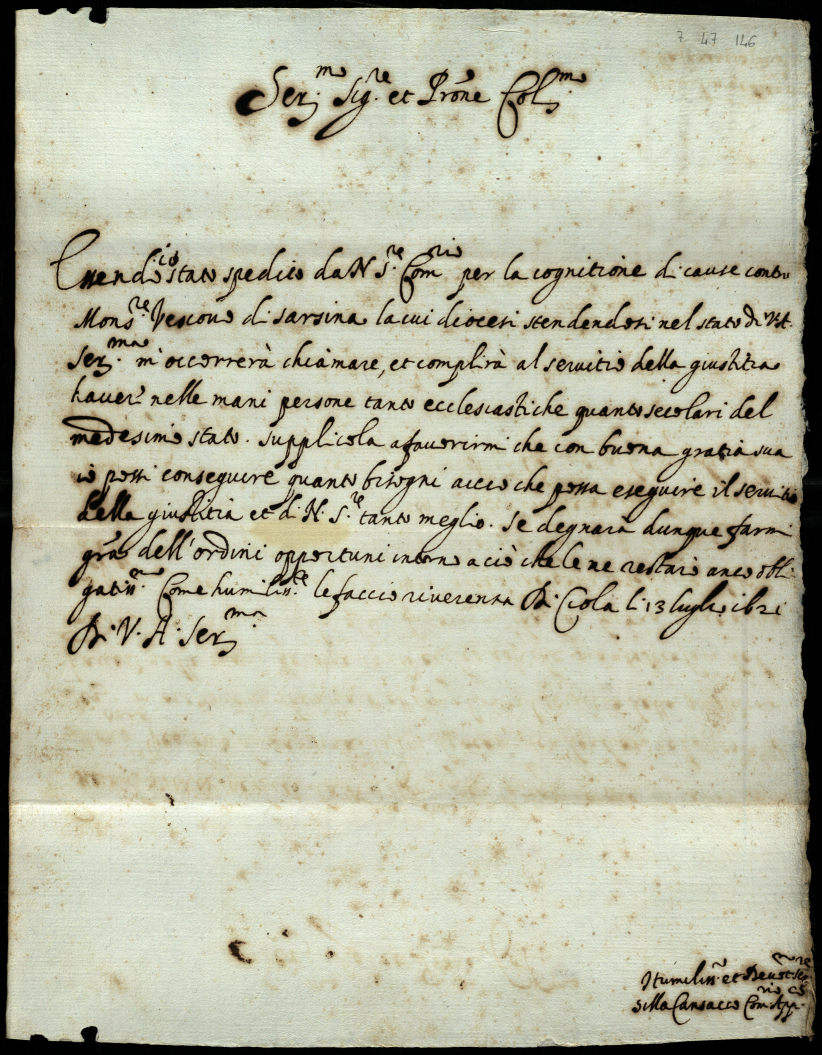 7 47 146
Ser.mo Sig.re et Pròne Col.mo
Essend'io stato spedito da N. S.re Com.rio per la cognitione di cause contro
Mons.re Vescovo di Sarsina la cui diocesi stendendosi nel stato di V.A.
Ser.ma m'occorrerà chiamare, et complirà al servitio della giustitia
haver nelle mani persone tanto ecclesiastiche quanto secolari del
medesimo stato. supplicola a favorirmi che con buena gratia sua
io possi conseguire quanto bisogni accio che possa eseguire il servitio
della giustitia et di N. S.re tanto meglio. Se degnarà dunque farmi
gra dell'ordini opportuni intorno a ciò che le ne restarò anco obli-
gatiss.mo Come humiliss.te le faccio riverenza Di Ciola li 13 luglio
Di V. A. Ser.ma
Humiliss. et Devot.mo Ser.re
Silla Cansacco Com.rio App.co